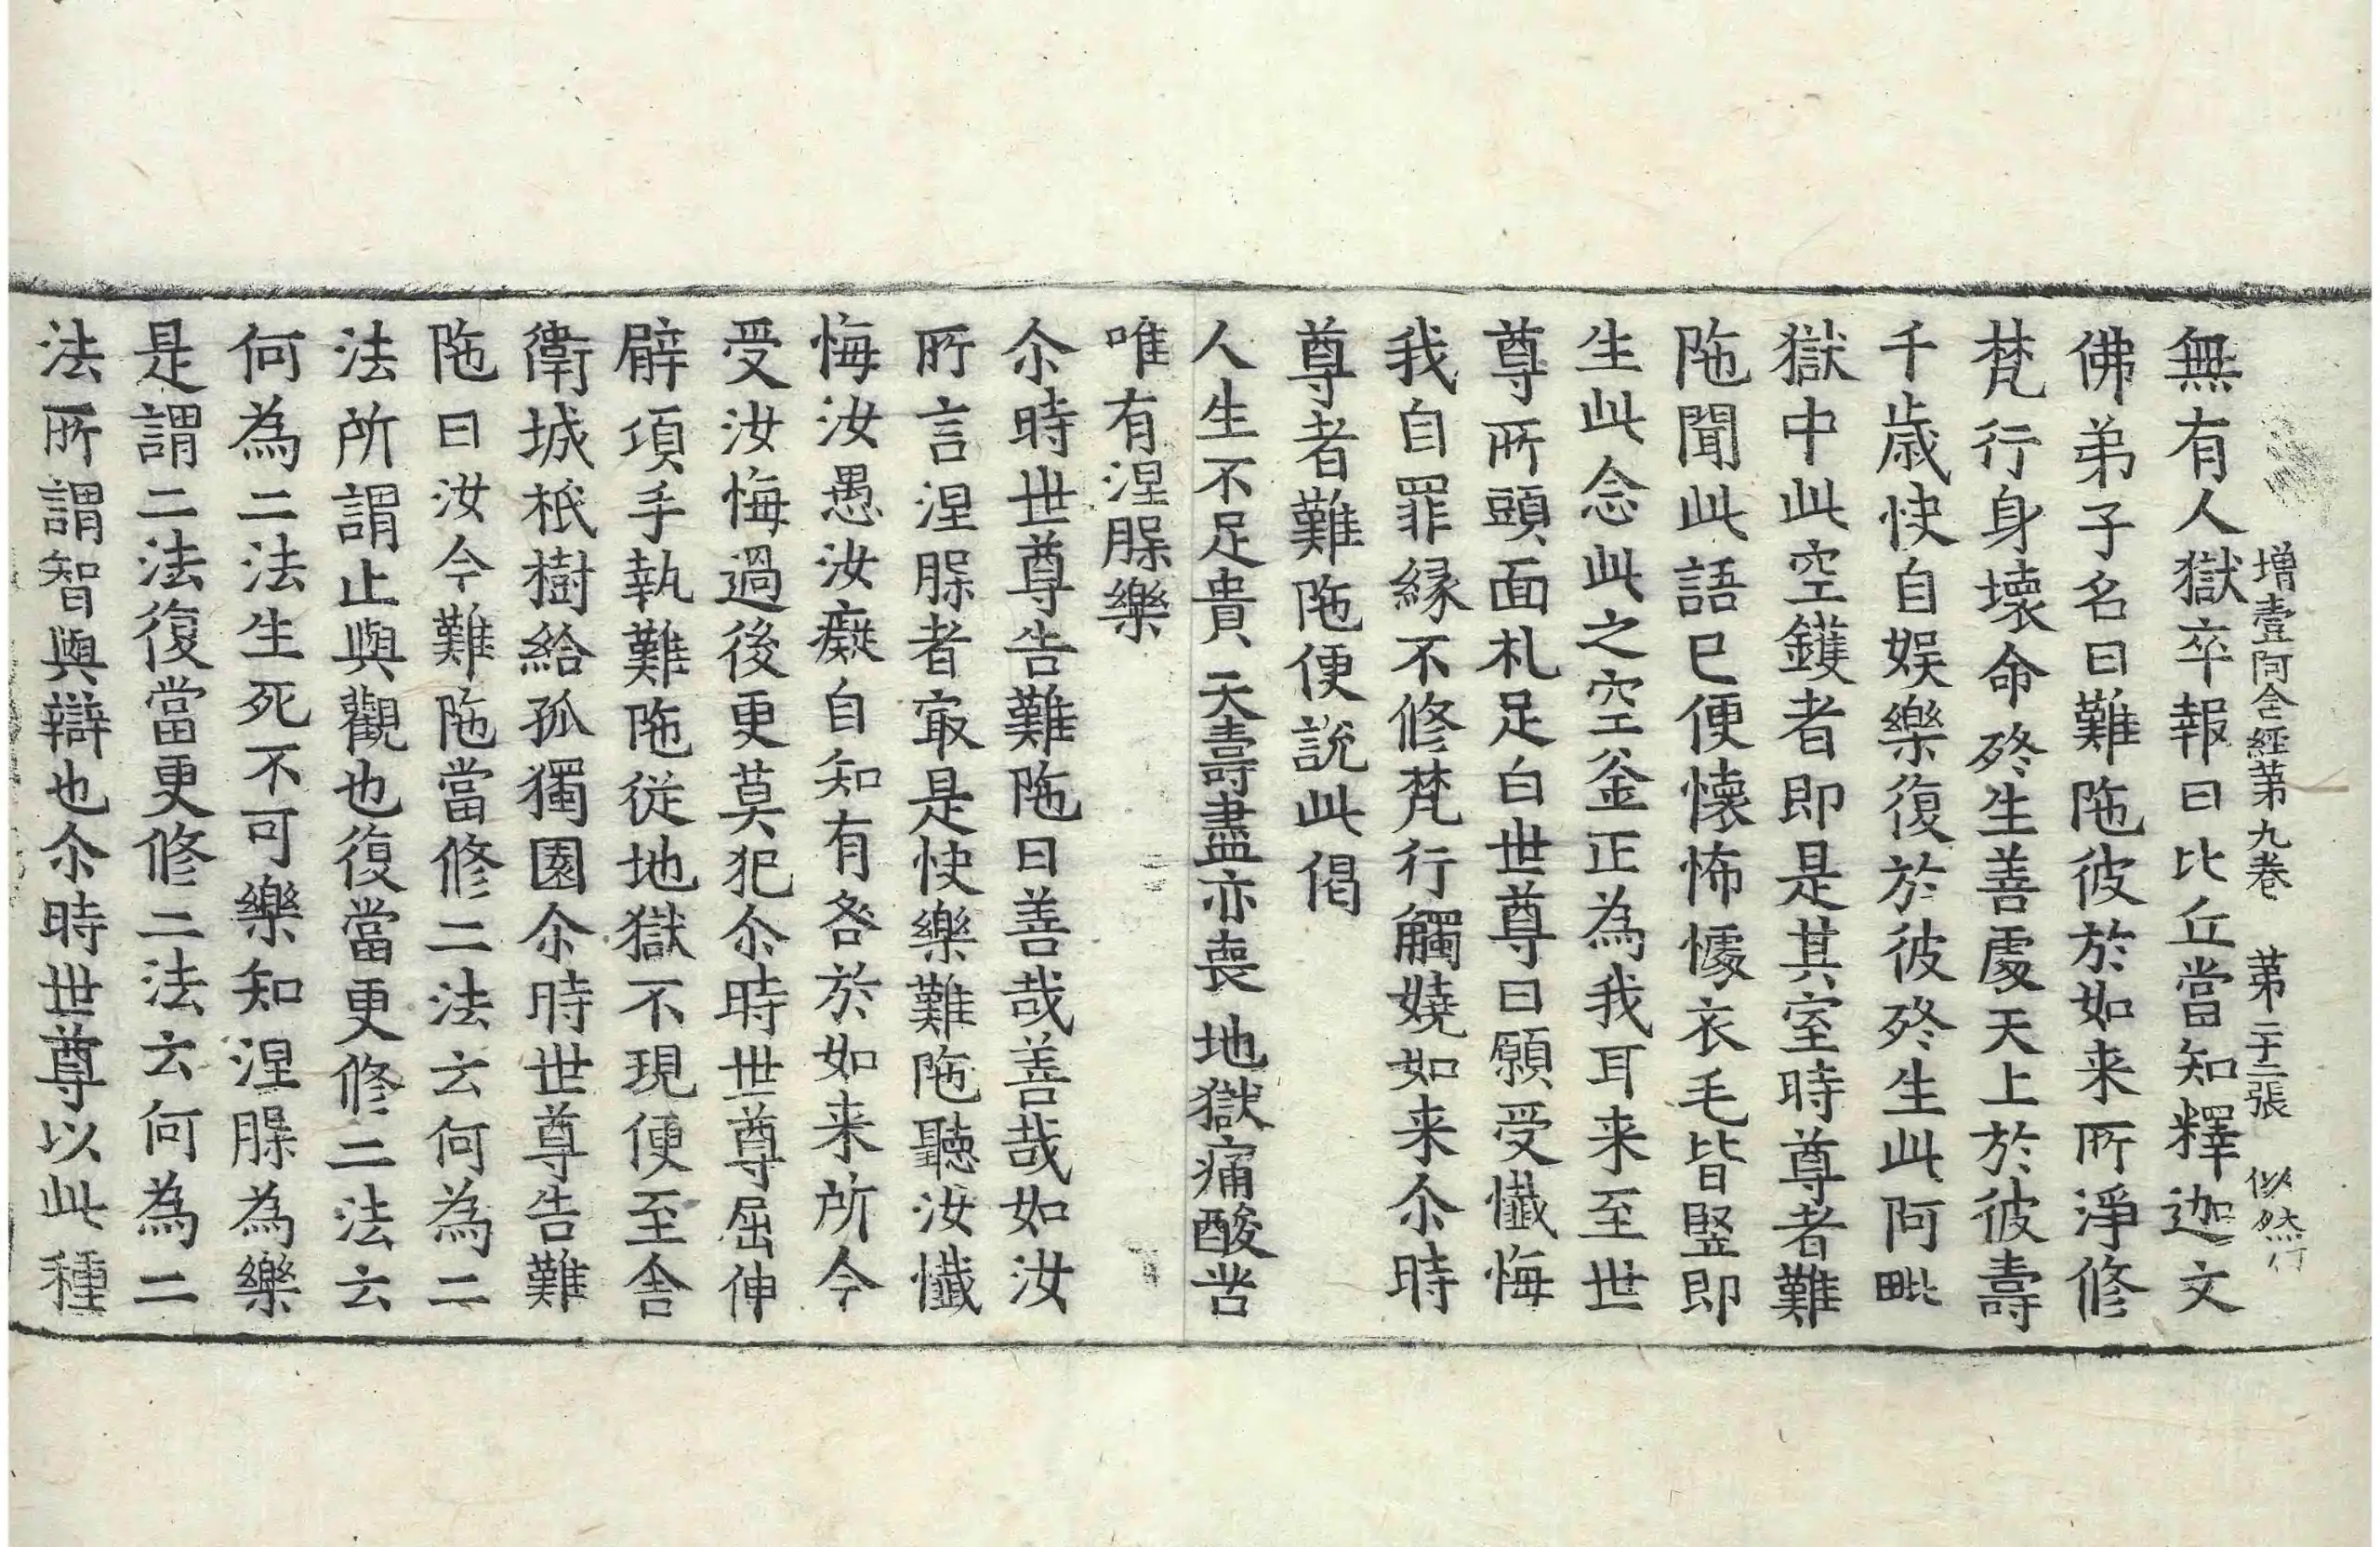 增壹阿含經第九卷 第二十二張 似然行
無有人獄卒報曰比丘當知釋迦文
佛弟子名曰難陁彼於如来所淨修
梵行身壞命終生善處天上於彼壽
千歲快自娱樂復於彼終生此阿毗
獄中此空鑊者即是其室時尊者難
陁聞此語已便懐怖懅衣毛皆竪即
生此念此之空釜正為我耳来至世
尊所頭面礼足白世尊曰願受懺悔
我自罪縁不修梵行觸嬈如来尒時
尊者難陁便說此偈
人生不足貴 天壽盡亦喪 地獄痛酸苦
唯有涅槃樂
尒時世尊告難陁曰善哉善哉如汝
所言涅槃者冣是快樂難陁聽汝懺
悔汝愚汝癡自知有咎於如来所今
受汝悔過後更莫犯尒時世尊屈伸
臂頃手執難陁從地獄不現便至舍
衛城祇樹給孤獨園尒時世尊告難
陁曰汝今難陁當修二法云何為二
法所謂止與觀也復當更修二法云
何為二法生死不可樂知涅槃為樂
是謂二法復當更修二法云何為二
法所謂智與辯也尒時世尊以此種